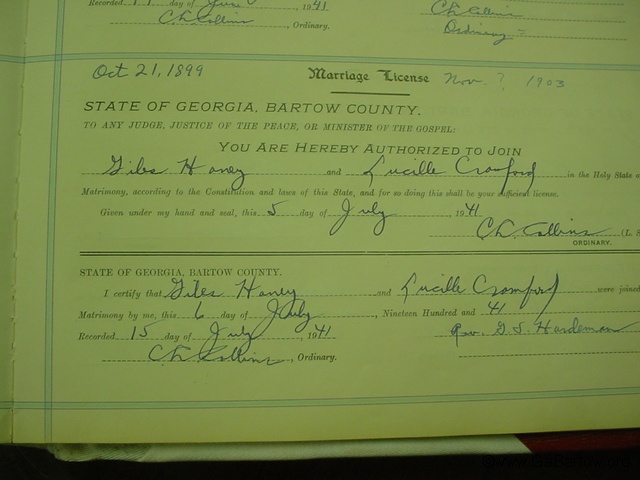 Recorded day of 1941
C L Collins, Ordinary.
Ordinary
Oct 21, 1899 Marriage License Nov. ? 1903
STATE OF GEORGIA, BARTOW COUNTY.
TO ANY JUDGE, JUSTICE OF THE PEACE, OR MINISTER OF THE GOSPEL:
YOU ARE HEREBY AUTHORIZED TO JOIN
Giles Haney and Lucille Crawford in the Holy State o
Matrimony, according to the Constitution and laws of this State, and for so doing this shall be your sufficient license.
Given under my hand and seal, this 5 day of July, 1941
C L Collins (L. S
ORDINARY.
STATE OF GEORGIA, BARTOW COUNTY.
I certify that Giles Haney and Lucille Crawford were joined
Matrimony by me, this 6 day of July, Nineteen Hundred and 41
Recorded 15 day of July 1941 Rev. G. S. Hardeman
C L Collins, Ordinary.